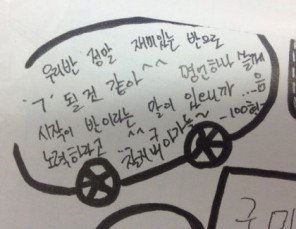 우리반 정말 재미있는 반으로
'7' 될 것 같아^^ 명언하나 쓸게
시작이 반이라는 말이 있으니까 ...음
노력하자고 ^^ 굿
~ -100현-
구 미